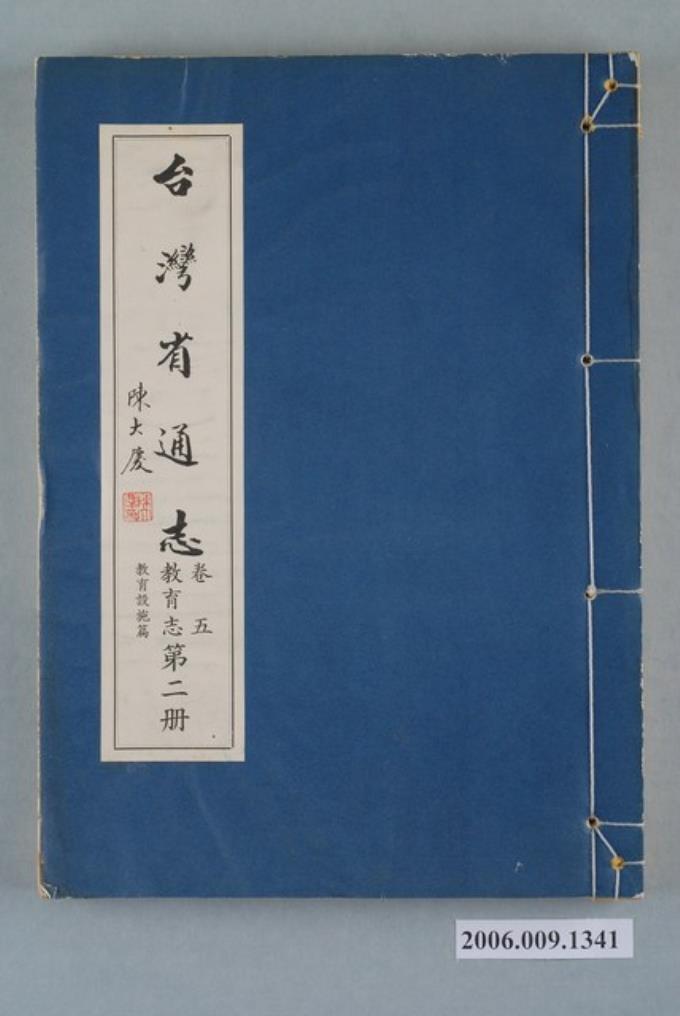 台灣省通志
卷五
教育志第二冊
教育設施篇
陳大慶
2006.009.1341